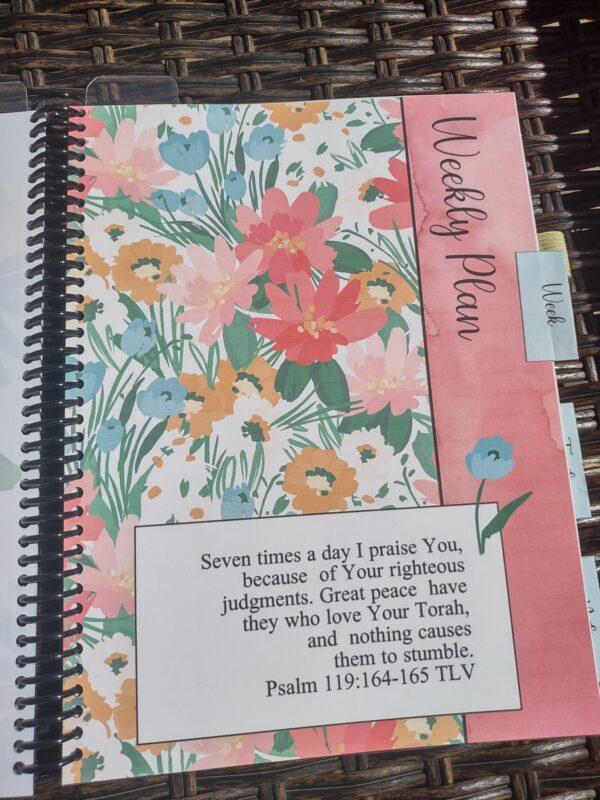 Weekly Plan
Week
Seven times a day I praise You,
because of Your righteous
judgments. Great peace have
they who love Your Torah,
and nothing causes
them to stumble.
Psalm 119:164-165 TLV